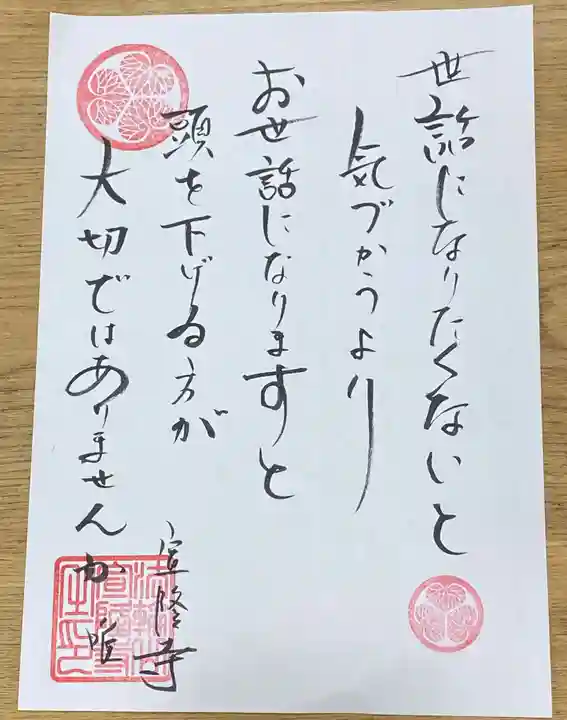 世話になりたくないと
気づかうより
お世話になりますと
頭を下げる方が
大切ではありませんか
宣隆寺
唯